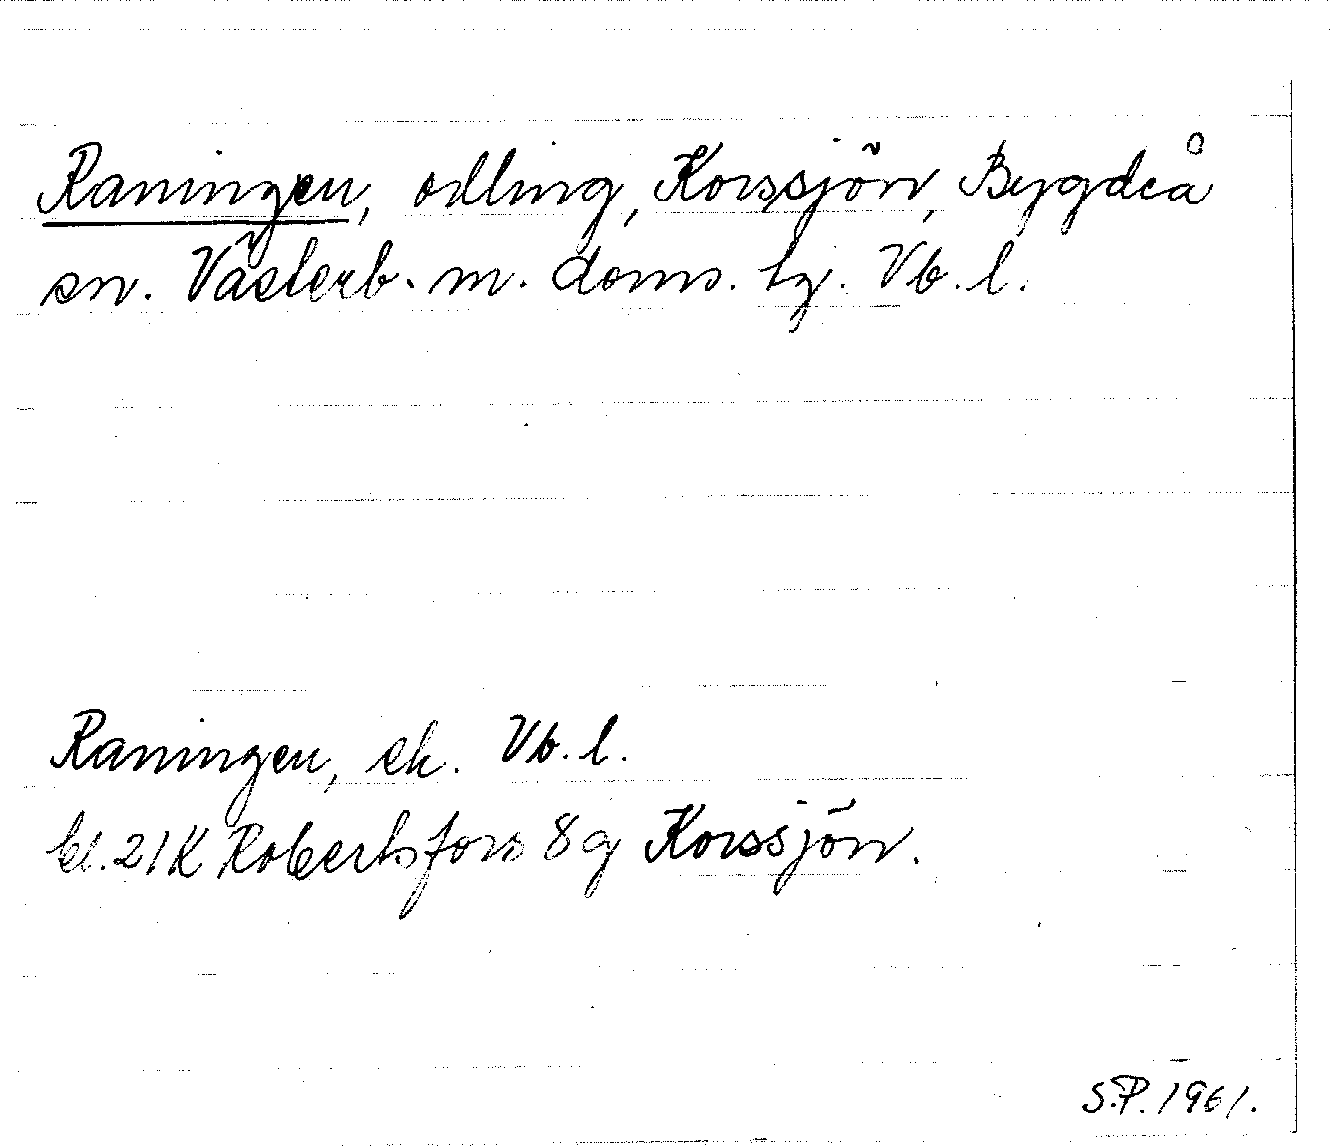 Raningen, odling, Korssjön, Bygdeå
sn. Västerb. m. doms. tg. Vb. l.
Raningen, ek. Vb. l.
bl. 21K Robertsfors 8g Korssjön.
S.P. 1961.